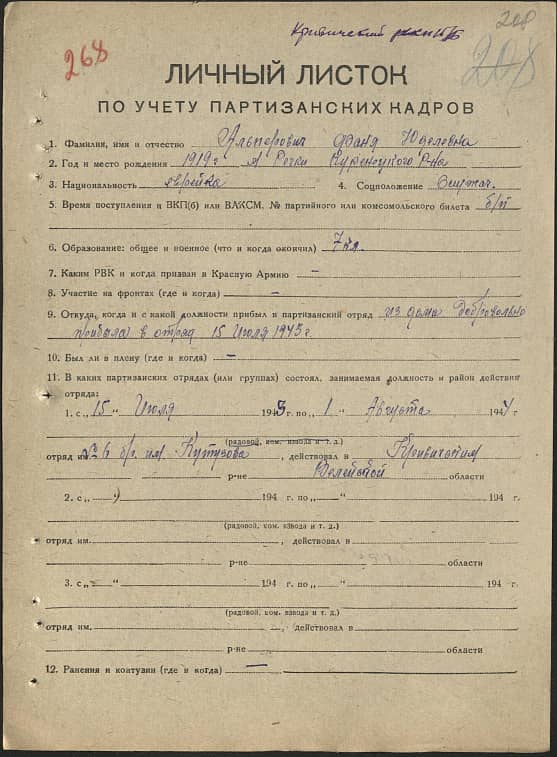 208
Кривический
268
208
ЛИЧНЫЙ ЛИСТОК
ПО УЧЕТУ ПАРТИЗАНСКИХ КАДРОВ
1. Фамилия, имя и отчество Альперович Фаня Юделевна
2. Год и место рождения 1919 г м. Речки Куренецкого р-на
3. Национальность еврейка 4. Соцположение Служащ.
5. Время поступления в ВКП(б) или ВЛКСМ. № партийного или комсомольского билета б/п
6. Образование: общее и военное (что и когда окончил) 7 кл.
7. Каким РВК и когда призван в Красную Армию —
8. Участие на фронтах (где и когда) —
9. Откуда, когда и с какой должности прибыл в партизанский отряд из дома добровольно
прибыла в отряд 15 Июля 1943 г.
10. Был ли в плену (где и когда) —
11. В каких партизанских отрядах (или группах) состоял, занимаемая должность и район действия
отряда:
1. с „ 15 “ Июля 1943 г. по „ 1 “ Августа 1944 г
(рядовой, ком. взвода и т. д.)
отряд № 6 бр. им. Кутузова, действовал в Кривичском
р-не Вилейской области
2. с „ “ 194 г. по „ “ 194 г.
(рядовой, ком. взвода и т. д.)
отряд им. , действовал в
р-не области
3. с „ “ 194 г. по „ “ 194 г.
(рядовой, ком. взвода и т. д.)
отряд им. , действовал в
р-не области
12. Ранения и контузии (где и когда) —